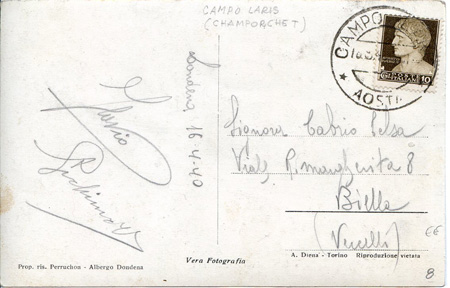 CAMPO LARIS
(CHAMPORCHET)
CAMPO
AOSTA
POSTE
ITALIANE
10
Dondena 16-4-40
Signora Cabrio Elsa
Viale R. Margherita 8
Biella
(Vercelli)
€€
Prop. ris. Perruchon - Albergo Dondena
Vera Fotografia
A. Diena - Torino Riproduzione vietata
8